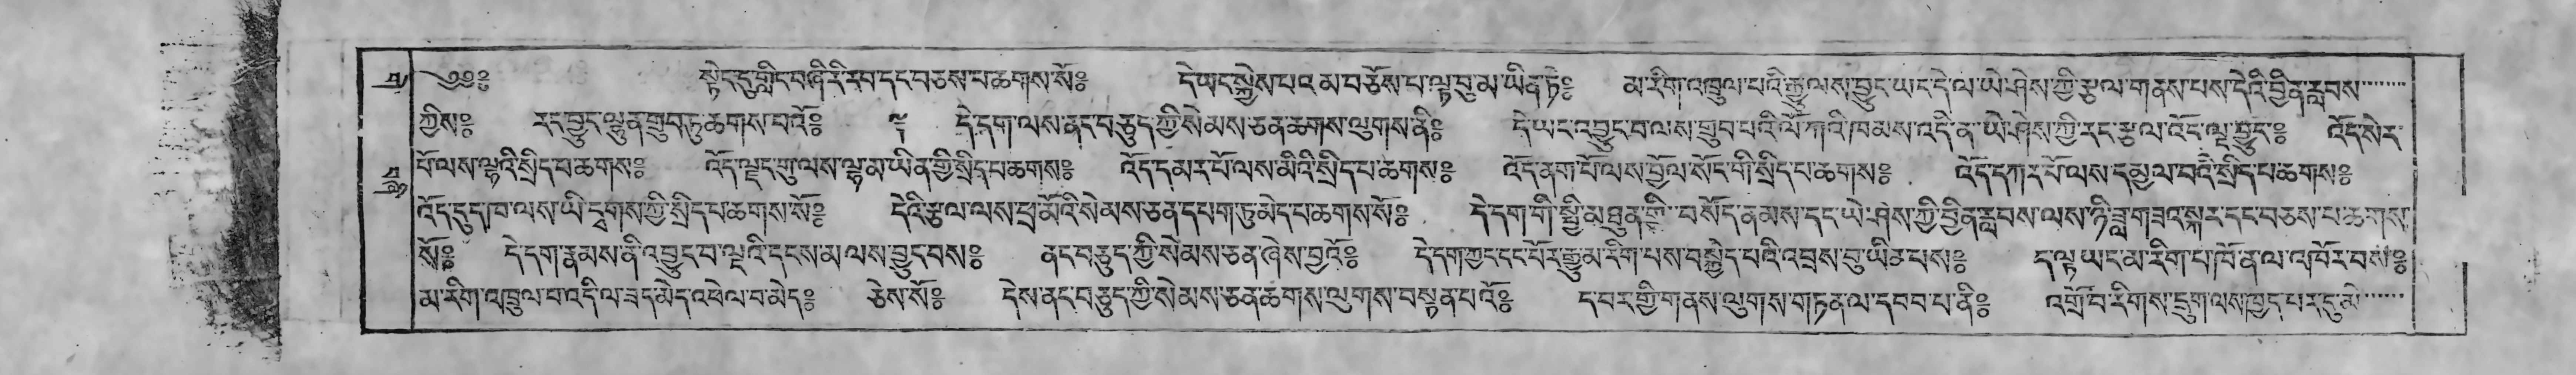 ༄༅༔ སྟེང་དུ་གླིང་བཞི་རི་རབ་དང་བཅས་པ་ཆགས་སོ༔ དེ་ཡང་སྐྱེས་པའམ་བཅོས་པ་ལྟ་བུ་མ་ཡིན་ཏེ༔ མ་རིག་འཁྲུལ་པའི་རྒྱུ་ལས་བྱུང་ཡང་དེ་ལ་ཡེ་ཤེས་ཀྱི་རྩལ་གནས་པས་དེའི་བྱིན་རླབས
ཀྱིས༔ རང་བྱུང་ལྷུན་གྲུབ་ཏུ་ཆགས་པའོ༔ དེ་དག་ལས་ནང་བཅུད་ཀྱི་སེམས་ཅན་ཆགས་ལུགས་ནི༔ དེ་ཡང་འབྱུང་བ་ལས་གྲུབ་པའི་ལོ་ཀའི་ཁམས་འདི་ན་ཡེ་ཤེས་ཀྱི་རང་རྩལ་འོད་ལྔ་བྱུང༔ འོད་སེར་
པོ་ལས་ལྷའི་སྲིད་པ་ཆགས༔ འོད་ལྗང་གུ་ལས་ལྷ་མ་ཡིན་གྱི་སྲིད་པ་ཆགས༔ འོད་དམར་པོ་ལས་མིའི་སྲིད་པ་ཆགས༔ འོད་ནག་པོ་ལས་བྱོལ་སོང་གི་སྲིད་པ་ཆགས༔ འོད་དཀར་པོ་ལས་དམྱལ་བའི་སྲིད་པ་ཆགས༔
འོད་དུད་ཁ་ལས་ཡི་དྭགས་ཀྱི་སྲིད་པ་ཆགས་སོ༔ དེའི་རྩལ་ལས་ཕྲ་མོའི་སེམས་ཅན་དཔག་ཏུ་མེད་པ་ཆགས་སོ༔ དེ་དག་གི་སྤྱི་མཐུན་གྱི་བསོད་ནམས་དང་ཡེ་ཤེས་ཀྱི་བྱིན་རླབས་ལས་ཉི་ཟླ་གཟའ་སྐར་དང་བཅས་པ་ཆགས་
སོ༔ དེ་དག་རྣམས་ནི་འབྱུང་བ་ལྔའི་དངས་མ་ལས་བྱུང་བས༔ ནང་བཅུད་ཀྱི་སེམས་ཅན་ཞེས་བྱའོ༔ དེ་དག་ཀྱང་དང་པོར་རྒྱུ་མ་རིག་པས་བསྐྱེད་པའི་འབྲས་བུ་ཡིན་པས༔ ད་ལྟ་ཡང་མ་རིག་པ་ཁོ་ན་ལ་འཁོར་བས༔
མ་རིག་འཁྲུལ་བ་འདི་ལ་ཟད་མེད་འཕེལ་བ་མེད༔ ཅེས་སོ༔ དེས་ནང་བཅུད་ཀྱི་སེམས་ཅན་ཆགས་ལུགས་བསྟན་པའོ༔ ད་བར་གྱི་གནས་ལུགས་གཏན་ལ་དབབ་པ་ནི༔ འགྲོ་བ་རིགས་དྲུག་ལས་ཁྱད་པར་དུ་མི